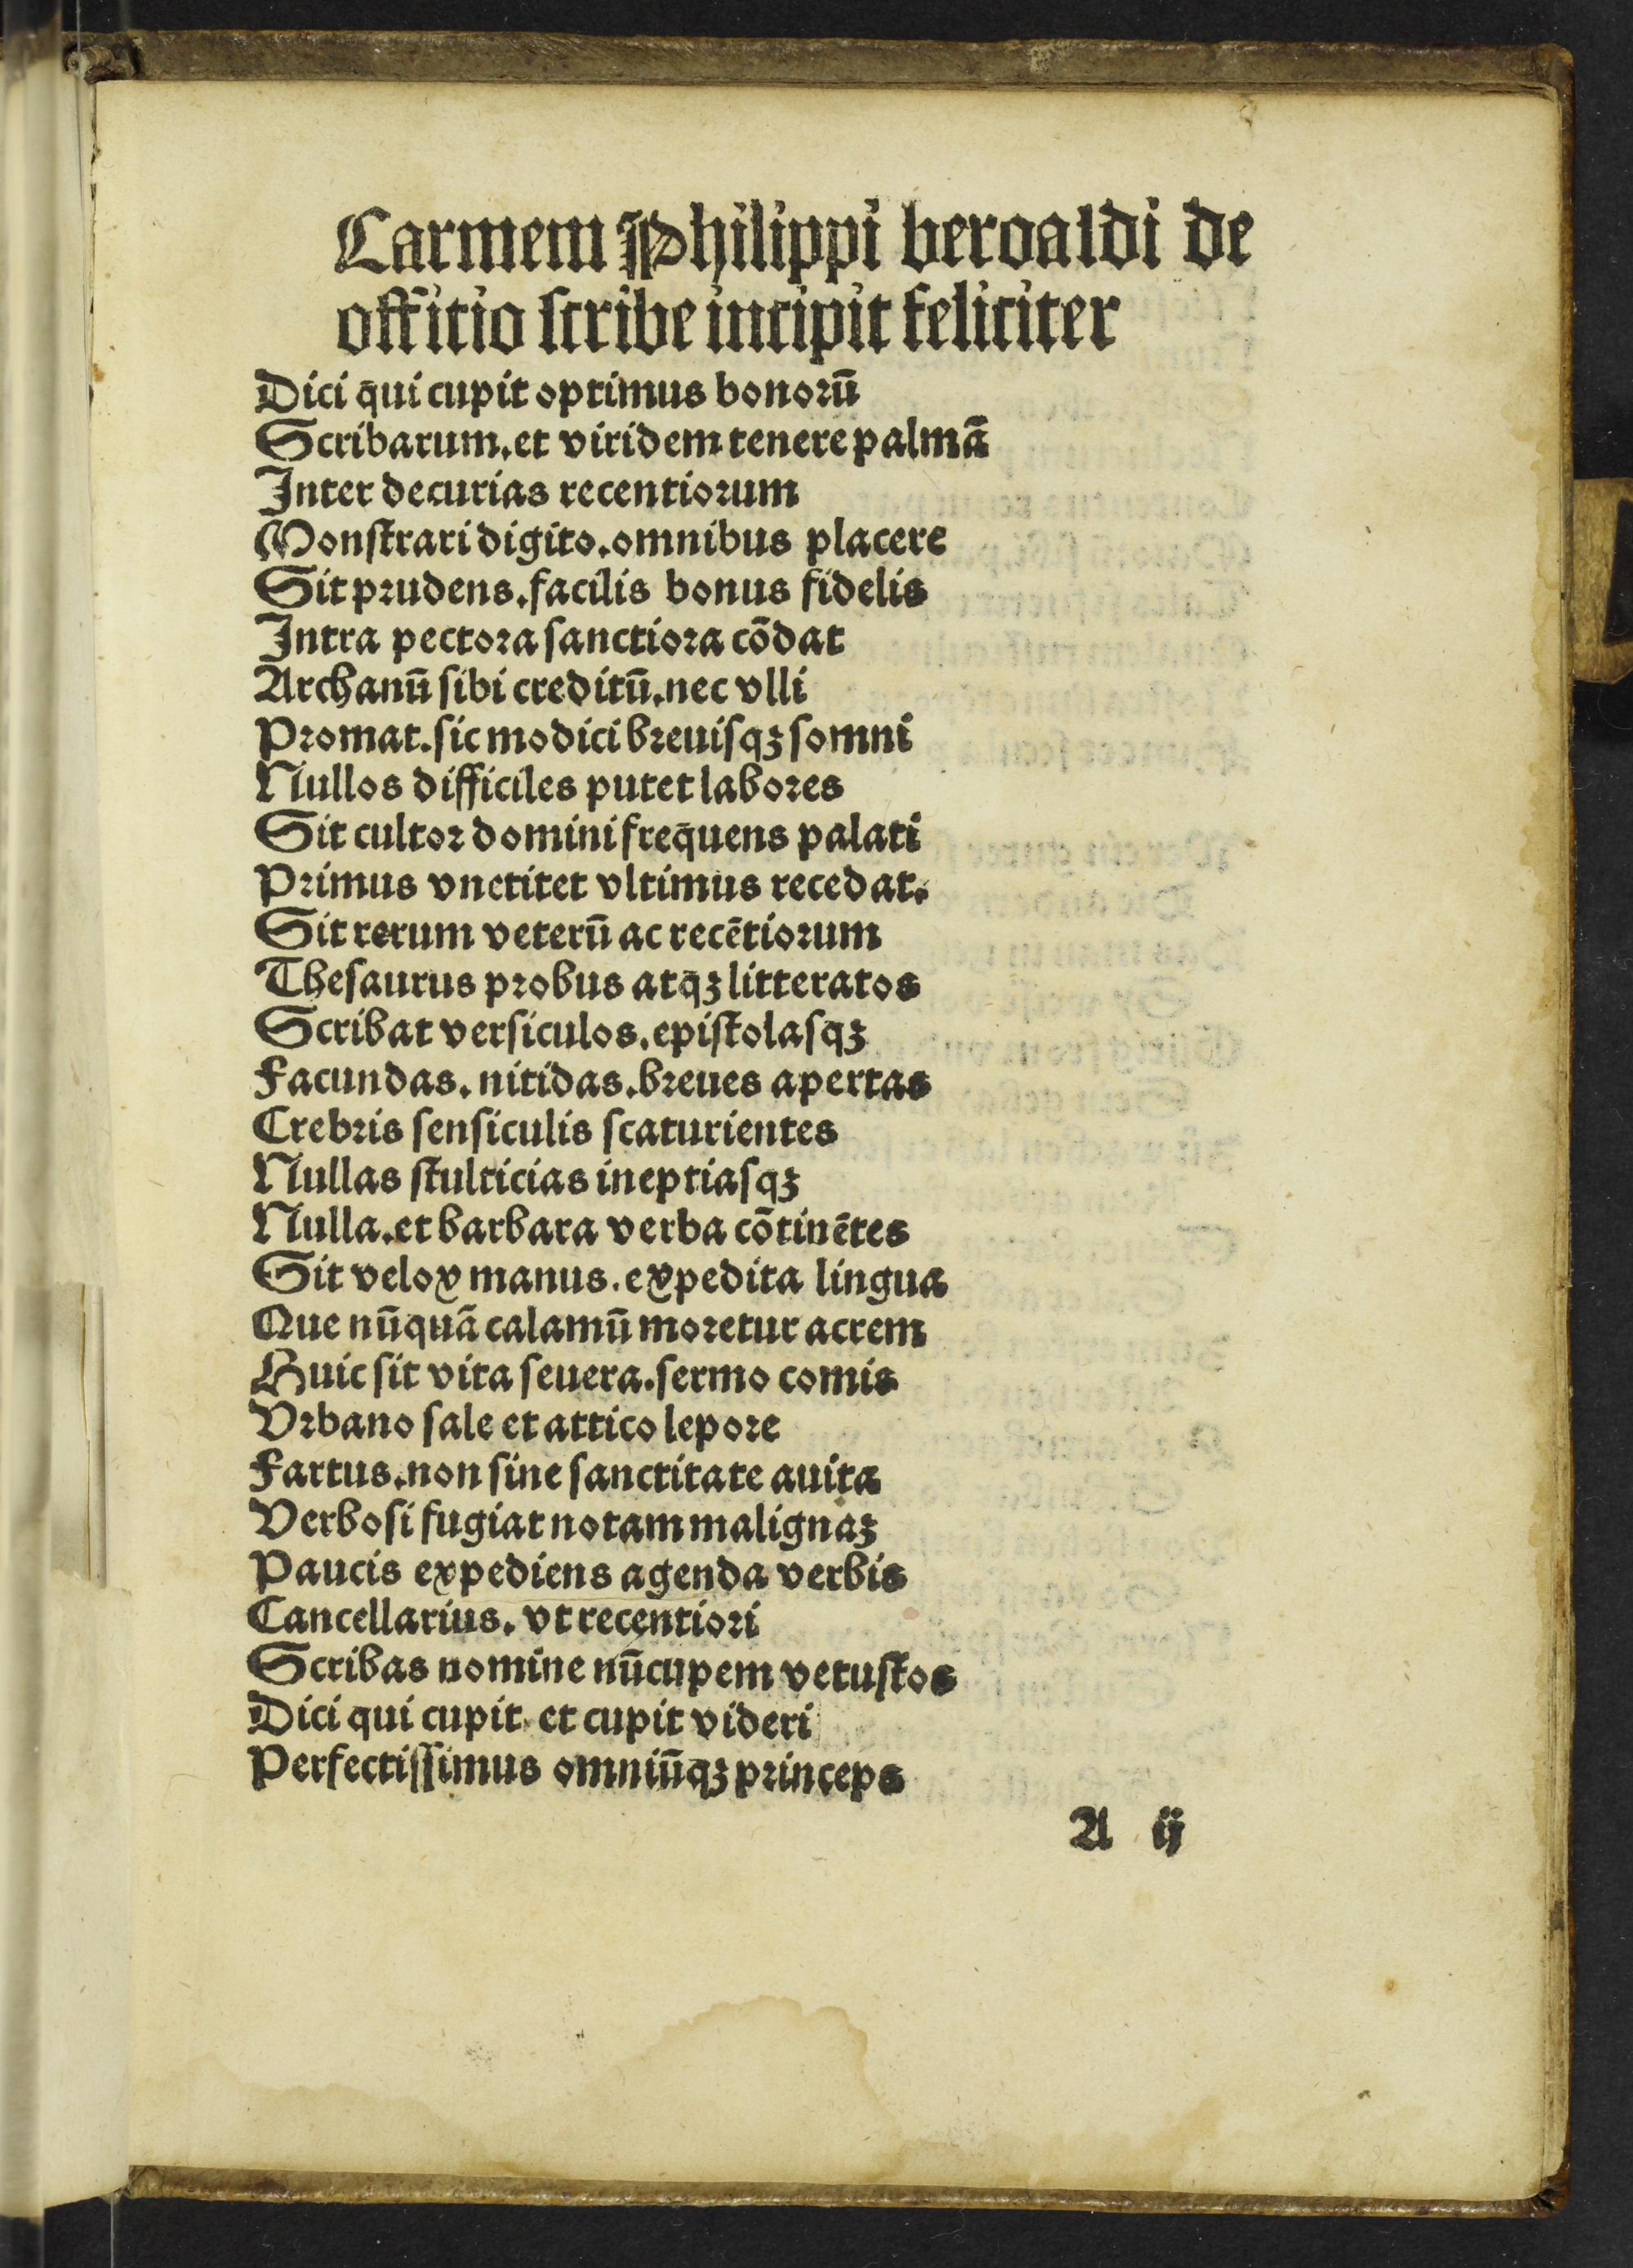 Carmem Philippi beroaldi de
offitio scribe incipit feliciter
Dici q̄ui cupit optimus bonorū
Scribarum.et viridem tenere palmā
Inter decurias recentiorum
Monſtrari digito.omnibus placere
Sit prudens.facilis bonus fidelis
Intra pectora ſanctiora cōdat
Archanū ſibi creditū.nec vlli
Promat.ſic modici breuiſqꝫ ſomni
Nullos difficiles putet labores
Sit cultor domini freq̄uens palati
Primus vnctitet vltimus recedat.
Sit rerum veterū ac recētiorum
Theſaurus probus atq̄ꝫ litteratos
Scribat verſiculos.epiſtolaſqꝫ
Facundas.nitidas.breues apertas
Crebris ſenſiculis ſcaturientes
Nullas ſtulticias ineptiaſqꝫ
Nulla.et barbara verba cōtinētes
Sit velox manus.expedita lingua
Que nūquā calamū moretur acrem
Huic ſit vita ſeuera.ſermo comis
Vrbano ſale et attico lepore
Fartus.non ſine ſanctitate auita
Verboſi fugiat notam malignaꝫ
Paucis expediens agenda verbis
Cancellarius.vt recentiori
Scribas nomine nūcupem vetuſtos
Dici qui cupit et cupit videri
Perfectiſſimus omniūqꝫ princeps
A ij